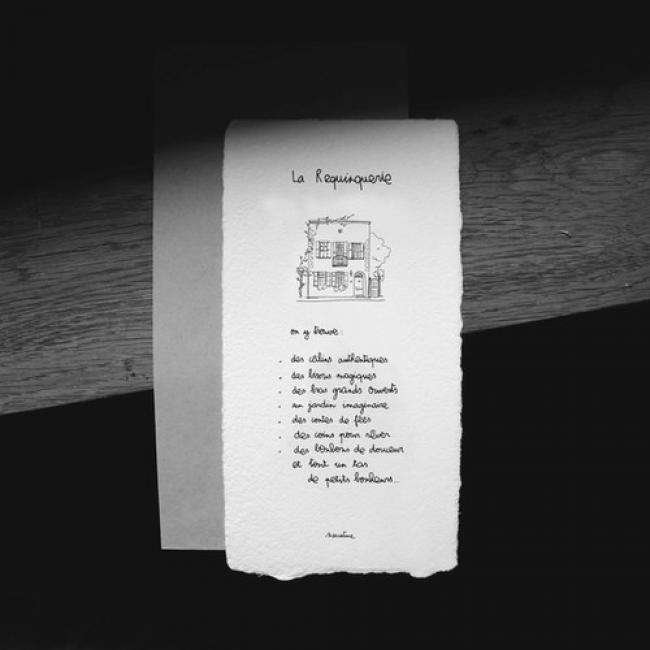 La Requinquerie
on y trouve :
. des câlins authentiques
. des bisous magiques
. des bras grands ouverts
. un jardin imaginaire
. des contes de fées
. des coins pour rêver
. des bonbons de douceur
et tout un tas
de petits bonheurs...